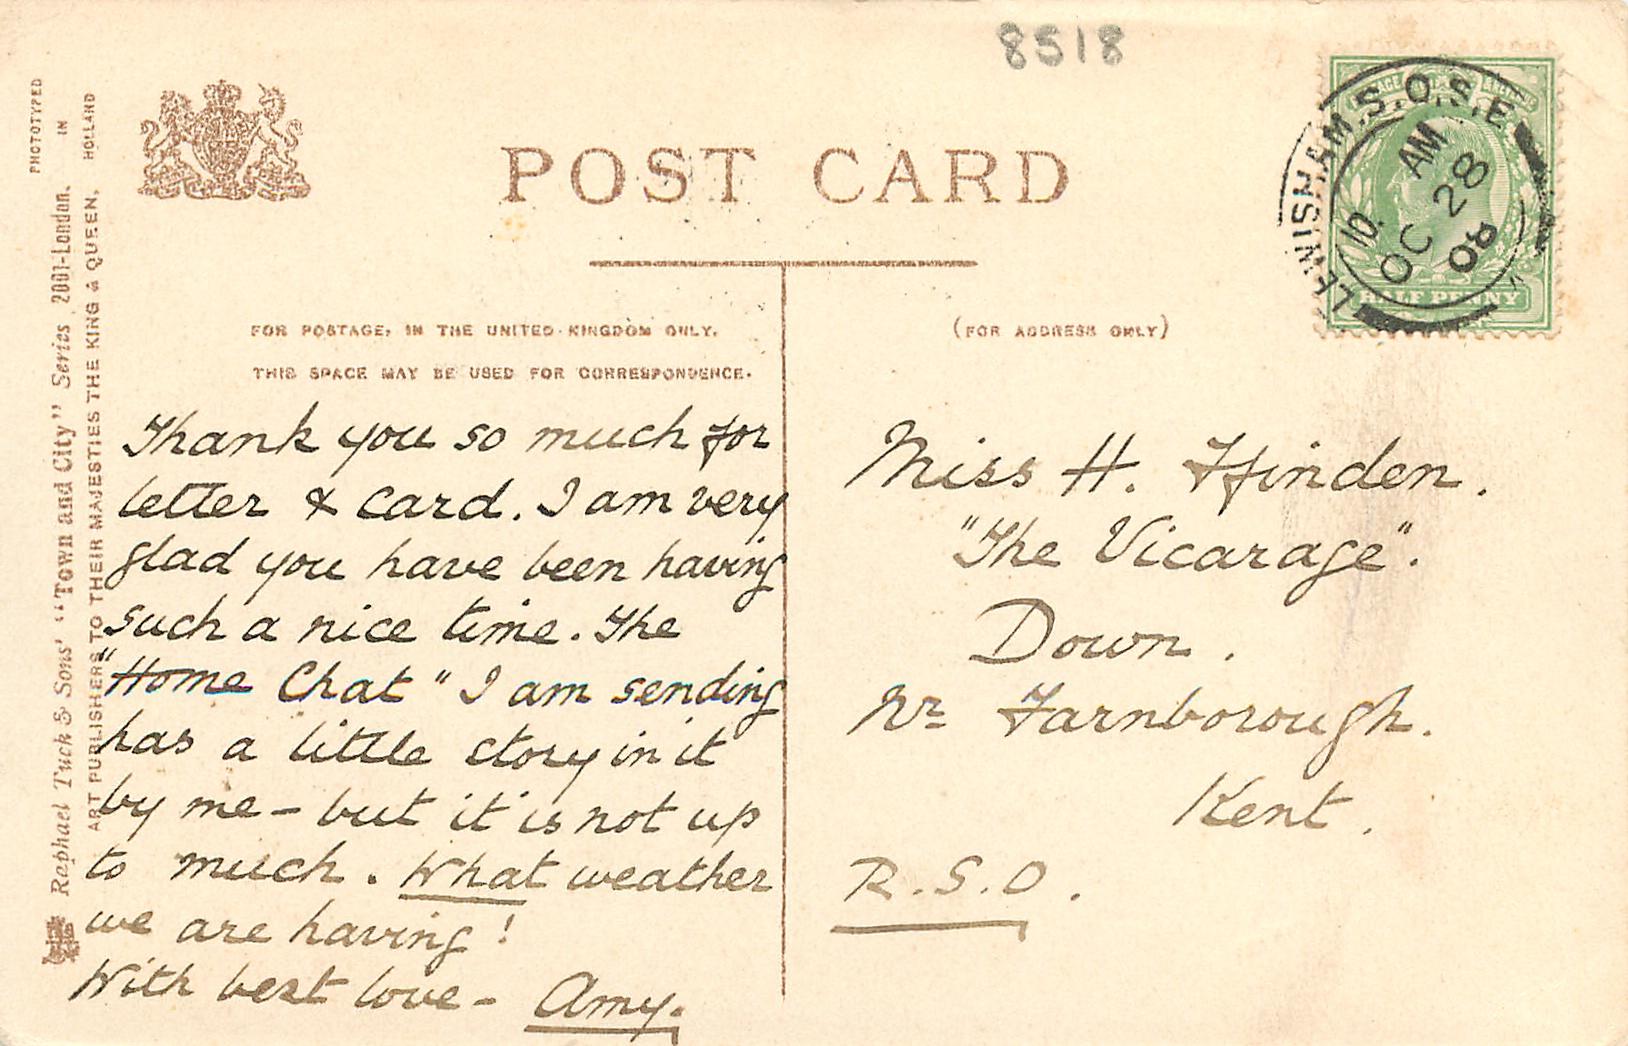 8518
POST CARD
FOR POSTAGE, IN THE UNITED KINGDOM ONLY.
THIS SPACE MAY BE USED FOR CORRESPONDENCE.
(FOR ADDRESS ONLY)
LEWISHAM.S.O.S.E
10 AM
OC 28
08
HALF PENNY
PHOTOTYPED IN HOLLAND
Raphael Tuck & Sons' "Town and City" Series 2001-London.
ART PUBLISHERS TO THEIR MAJESTIES THE KING & QUEEN.
Thank you so much for
letter & card. I am very
glad you have been having
such a nice time. The
"Home Chat" I am sending
has a little story in it
by me - but it is not up
to much. What weather
we are having!
With best love - Amy.
Miss H. Ffinden.
"The Vicarage".
Down.
Nr Farnborough.
Kent.
R.S.O.